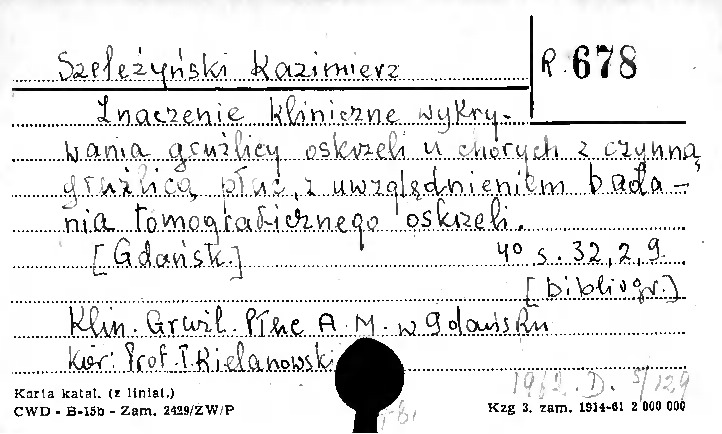 Szeleżyński Kazimierz
R 678
Znaczenie kliniczne wykry-
wania gruźlicy oskrzeli u chorych z czynną
gruźlicą płuc, z uwzględnieniem bada-
nia tomograficznego oskrzeli.
[Gdańsk.] 4° s. 32, 2, 9.
[bibliogr.]
Klin. Gruźl. Płuc A.M. w Gdańsku
Kier: Prof. T. Kielanowski
1962. D. 5/129
Karta katal. (z liniat.)
CWD - B-15b - Zam. 2429/ZW/P
Kzg 3. zam. 1914-61 2 000 000